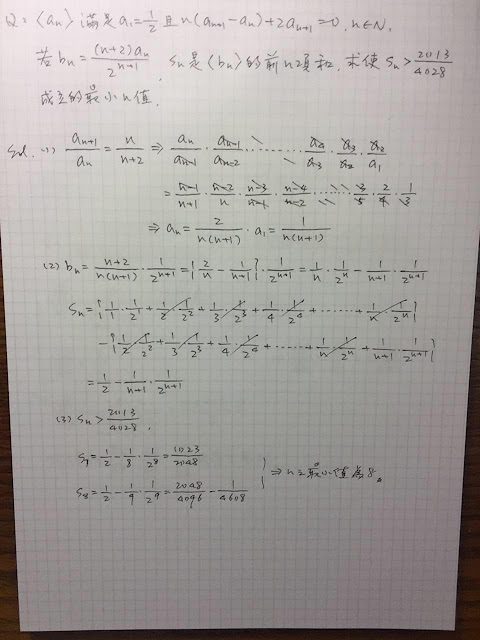 Q: <an> 滿足 a₁=1/2 且 n(aₙ₊₁-aₙ)+2aₙ₊₁=0, n∈N,
若 bₙ=(n+2)aₙ/2ⁿ⁺¹, Sₙ是<bₙ>的前n項和, 求使 Sₙ>2013/4028
成立的最小n值.
Sol. (1) aₙ₊₁/aₙ=n/(n+2) ⇒ aₙ/aₙ₋₁·aₙ₋₁/aₙ₋₂········a₄/a₃·a₃/a₂·a₂/a₁
=(n-1)/(n+1)·(n-2)/n·(n-3)/(n-1)·(n-4)/(n-2)····3/5·2/4·1/3
⇒ aₙ=2/(n(n+1))·a₁=1/(n(n+1))
(2) bₙ=(n+2)/(n(n+1))·1/2ⁿ⁺¹={2/n-1/(n+1)}·1/2ⁿ⁺¹=1/n·1/2ⁿ-1/(n+1)·1/2ⁿ⁺¹
Sₙ={1/1·1/2¹+1/2·1/2²+1/3·1/2³+1/4·1/2⁴+······+1/n·1/2ⁿ}
-{1/2·1/2²+1/3·1/2³+1/4·1/2⁴+······+1/n·1/2ⁿ+1/(n+1)·1/2ⁿ⁺¹}
=1/2-1/(n+1)·1/2ⁿ⁺¹
(3) Sₙ>2013/4028,
S₇=1/2-1/8·1/2⁸=1023/2048
S₈=1/2-1/9·1/2⁹=2048/4096-1/4608
} ⇒ n之最小值為8。